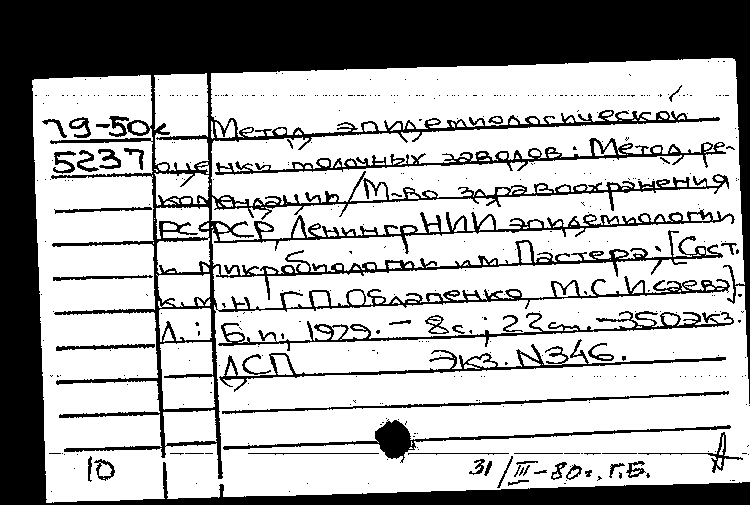 79-50к Метод эпидемиологической
5237 оценки молочных заводов: Метод. ре-
комендации/М-во здравоохранения
РСФСР, Ленингр НИИ эпидемиологии
и микробиологии им. Пастера; [Сост.
к.м.н. Г.П.Облапенко, М.С.Исаева].-
Л.: Б.и., 1979. - 8с.; 22см. - 350экз.
ДСП Экз. N346.
10 31/III-80г. Г.Б.